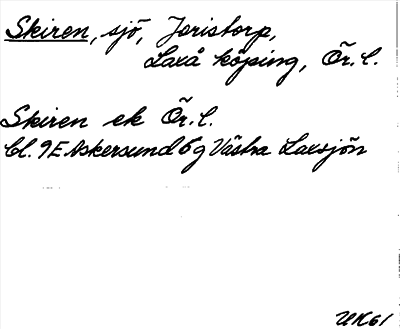 Skiren, sjö, Joristorp,
Laxå köping, Ör. l.
Skiren ek Ör. l.
Bl. 9E Askersund 6g Västra Laxsjön
UH61